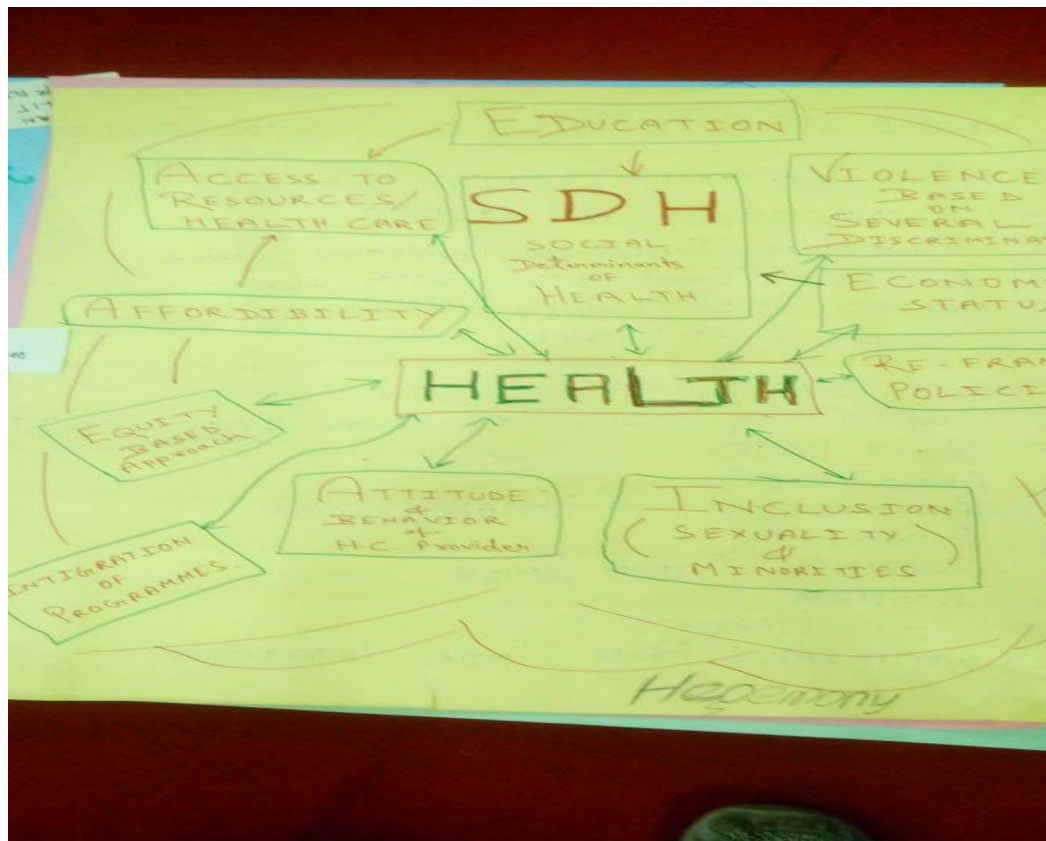 EDUCATION
ACCESS TO
RESOURCES/
HEALTH CARE
SDH
SOCIAL
Determinants
OF
HEALTH
VIOLENCE
BASED
ON
SEVERAL
DISCRIMINAT
ECONOM
STATUS
AFFORDIBILITY
HEALTH
RE-FRAM
POLICI
EQUITY
BASED
Approach
ATTITUDE
&
BEHAVIOR
of
H.C Provider
INCLUSION
(SEXUALITY
&
MINORITIES)
INTIGRATION
OF
PROGRAMMES.
Hegemony